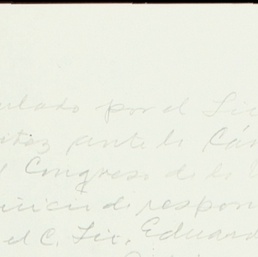 ulado por el Lic
itez ante la Cám
l Congreso de la U
juicio de respon
el C. Lic. Eduard